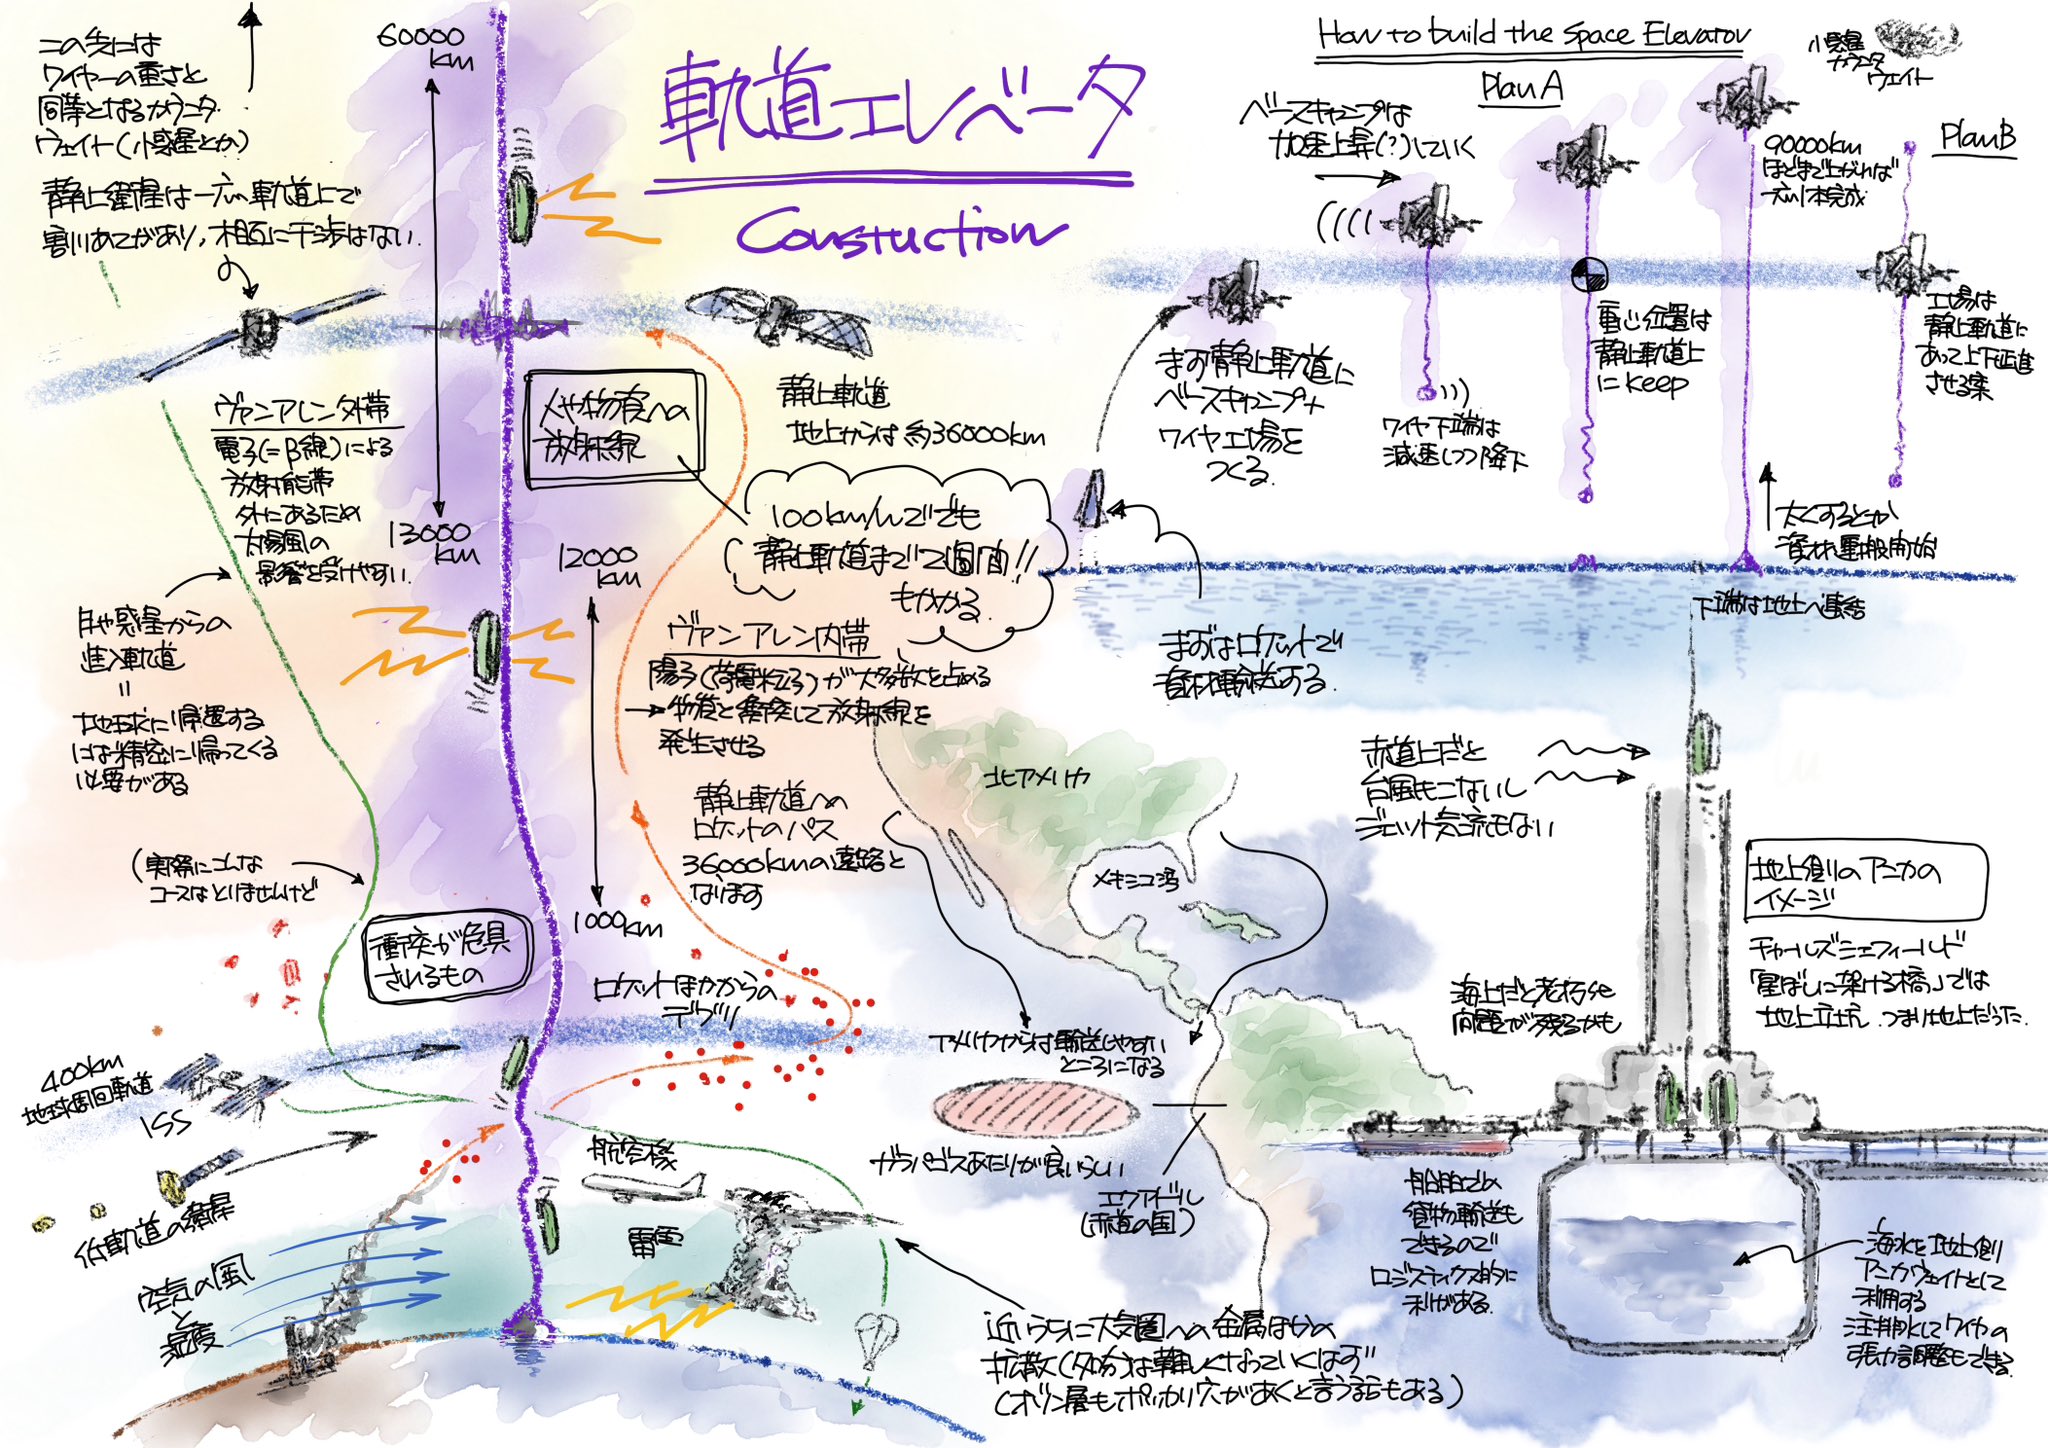 この先には
ワイヤーの重さと
同等となるカウンタ
ウェイト(小惑星とか)
60000
km
軌道エレベータ
Constuction
静止衛星は一応軌道上で
割りあてがあり、相互に干渉はない.
ヴァンアレン外帯
電子(=β線)による
放射能帯
外にあるため
太陽風の
影響を受けやすい.
13000
km
人や物資への
放射線
静止軌道
地上からは約36000km
100km/hででも
静止軌道まで2週間!!
もかかる.
12000
km
1000km
ヴァンアレン内帯
陽子(荷電粒子)が大多数を占める
→物質と衝突して放射線を
発生させる
月や惑星からの
進入軌道
=
地球に帰還する
には精密に帰ってくる
必要がある
(実際にこんな
コースはとりませんけど
静止軌道への
ロケットのパス
36000kmの遠路と
なります
衝突が危具
されるもの
ロケットほかからの
デブリ
400km
地球周回軌道
ISS
低軌道の衛星
空気の風
と
湿度
航空機
雷雲
近いうちに大気圏への金属ほかの
拡散(多分)は難しくなっていくはず
(オゾン層もポッカリ穴があくと言う話もある)
How to build the Space Elevator
Plan A
小惑星
カウンタ
ウェイト
ベースキャンプは
加速上昇(?)していく
90000km
ほどまで上がれば
一応1本完成
Plan B
まず静止軌道に
ベースキャンプ+
ワイヤ工場を
つくる.
ワイヤ下端は
減速しつつ降下
重心位置は
静止軌道上
にkeep
工場は
静止軌道に
あって上下延進
させる案
太くするとか
資材運搬開始
下端は地上へ連結
まずはロケットで
資材輸送する.
北アメリカ
メキシコ湾
アメリカからは輸送しやすい
ところになる
ガラパゴスあたりが良いらしい
エクアドル
(赤道の国)
赤道上だと
台風もこないし
ジェット気流もない
地上側のアンカの
イメージ
チャールズシェフィールド
「星ぼしに架ける橋」では
地上立坑.つまり地上だった.
海上だと老朽化
問題が残るかも
船舶での
貨物輸送も
できるので
ロジスティクス的に
利がある.
海水を地上側
アンカウェイトとして
利用する
注排水してワイヤの
張力調整もできる.